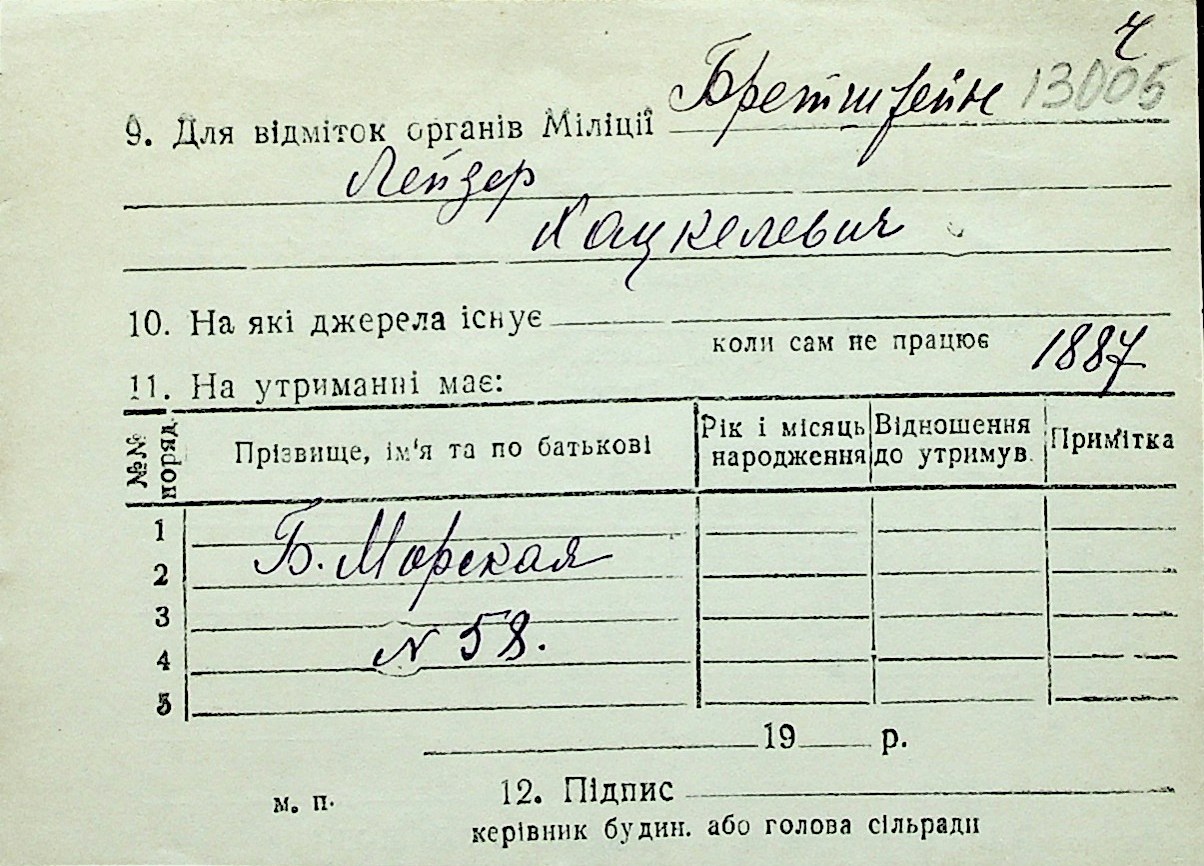 ч
9. Для відміток органів Міліції Бретштейн 13005
Лейзер
Хацкелевич
10. На які джерела існує
коли сам не працює 1887
11. На утриманні має:
№№ поряд. Прізвище, ім'я та по батькові Рік і місяць народження Відношення до утримув. Примітка
1
Б. Морская
2
3
N 58.
4
5
19 р.
м. п. 12. Підпис
керівник будин. або голова сільради